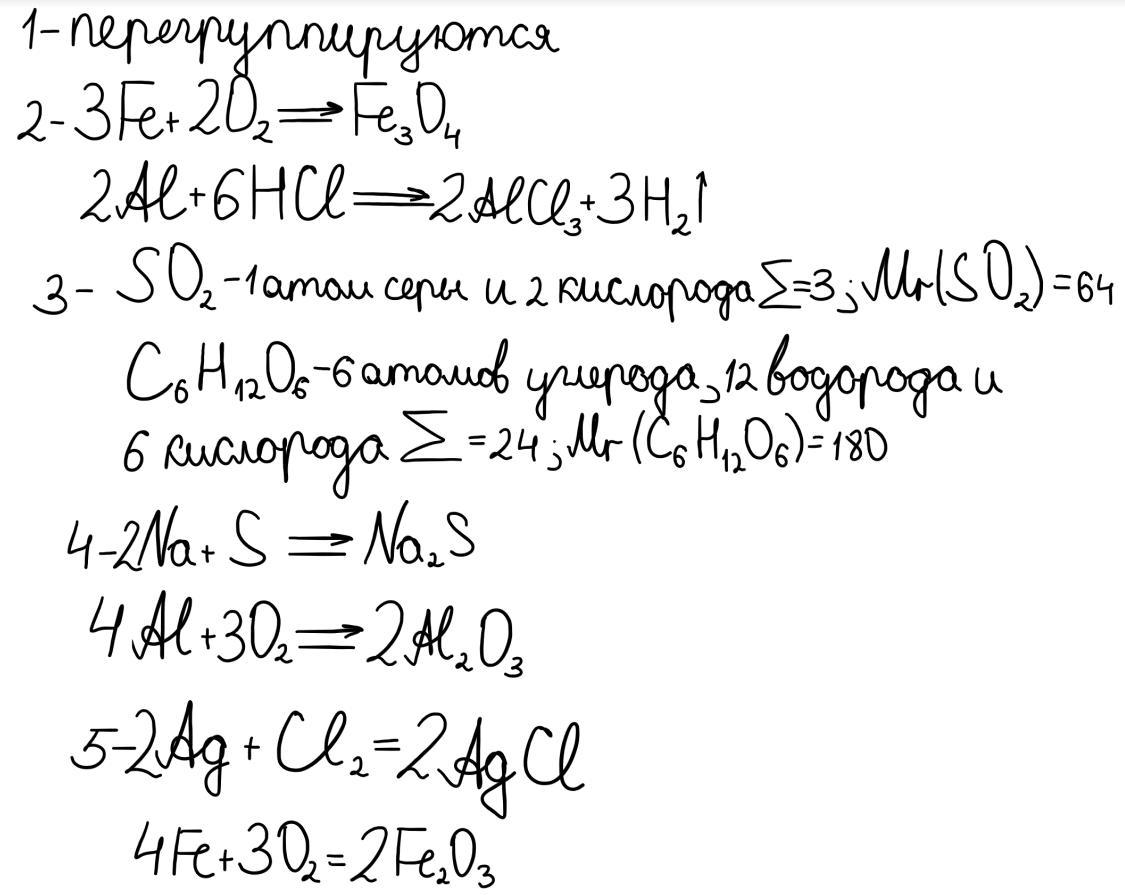 1-перегруппируются
2-3Fe+2O₂⟹Fe₃O₄
2Al+6HCl⟹2AlCl₃+3H₂↑
3-SO₂-1 атом серы и 2 кислорода Σ=3; Mr(SO₂)=64
C₆H₁₂O₆-6 атомов углерода, 12 водорода и
6 кислорода Σ=24; Mr(C₆H₁₂O₆)=180
4-2Na+S⟹Na₂S
4Al+3O₂⟹2Al₂O₃
5-2Ag+Cl₂=2AgCl
4Fe+3O₂=2Fe₂O₃